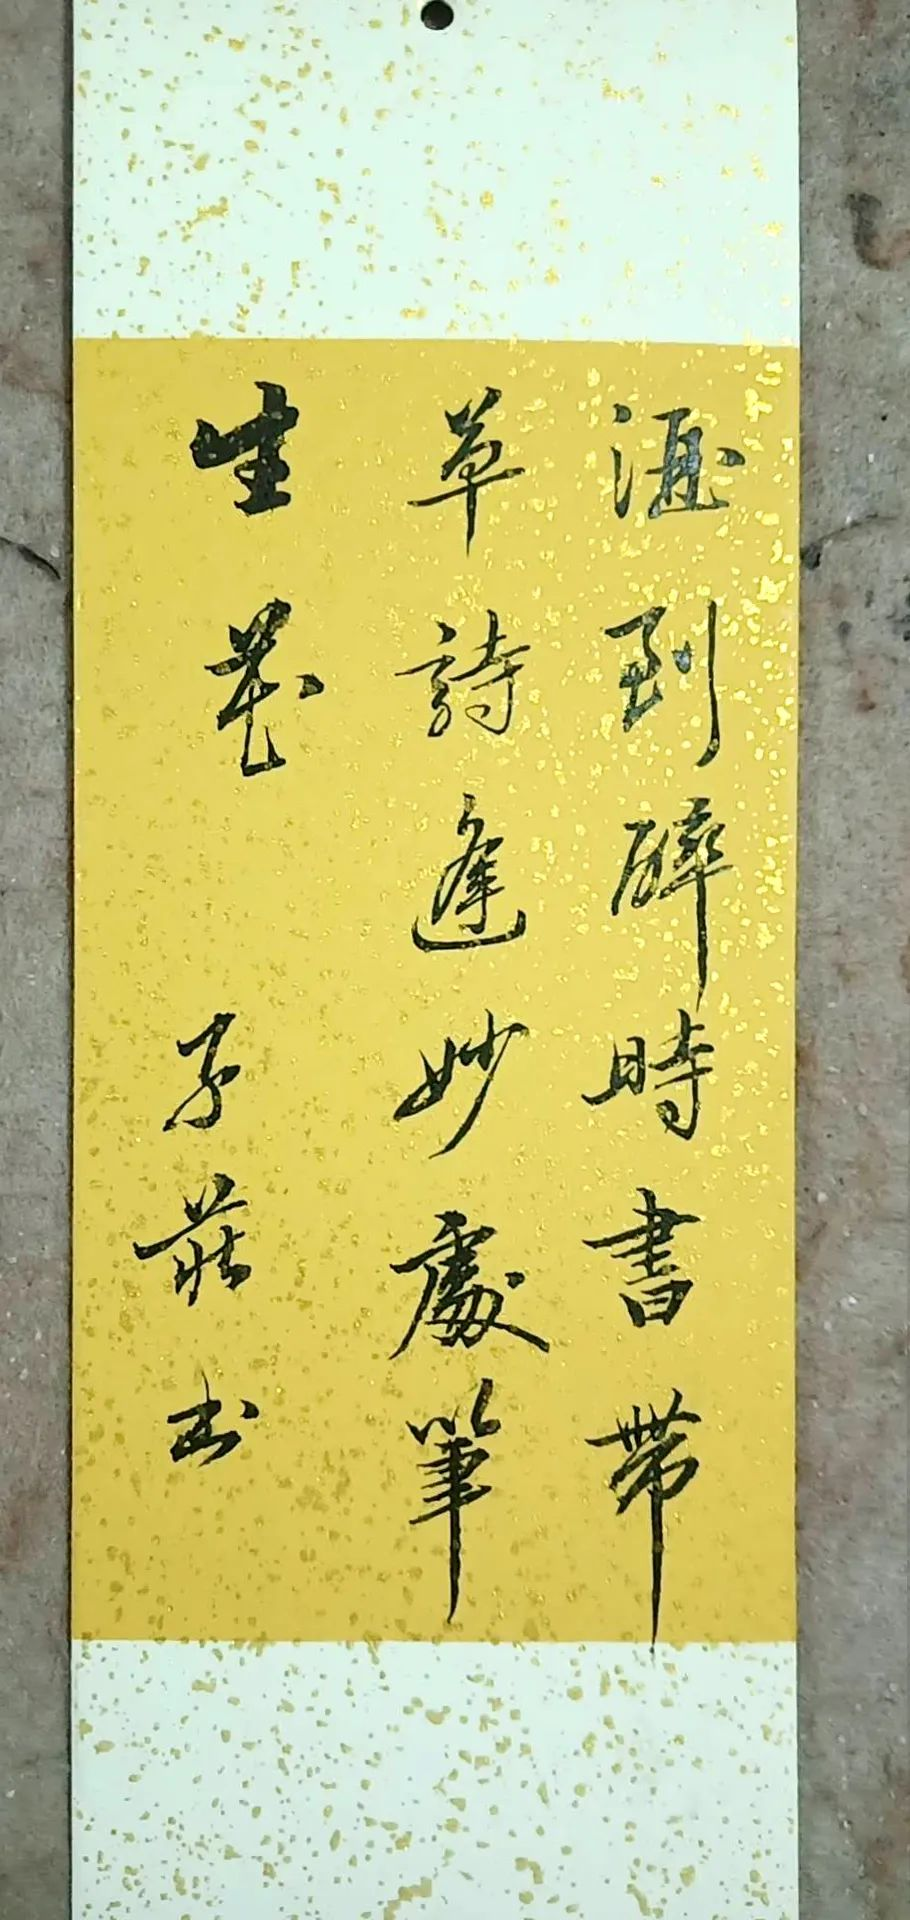 酒到醉時書帶
草詩逢妙處筆
生花 子莊书